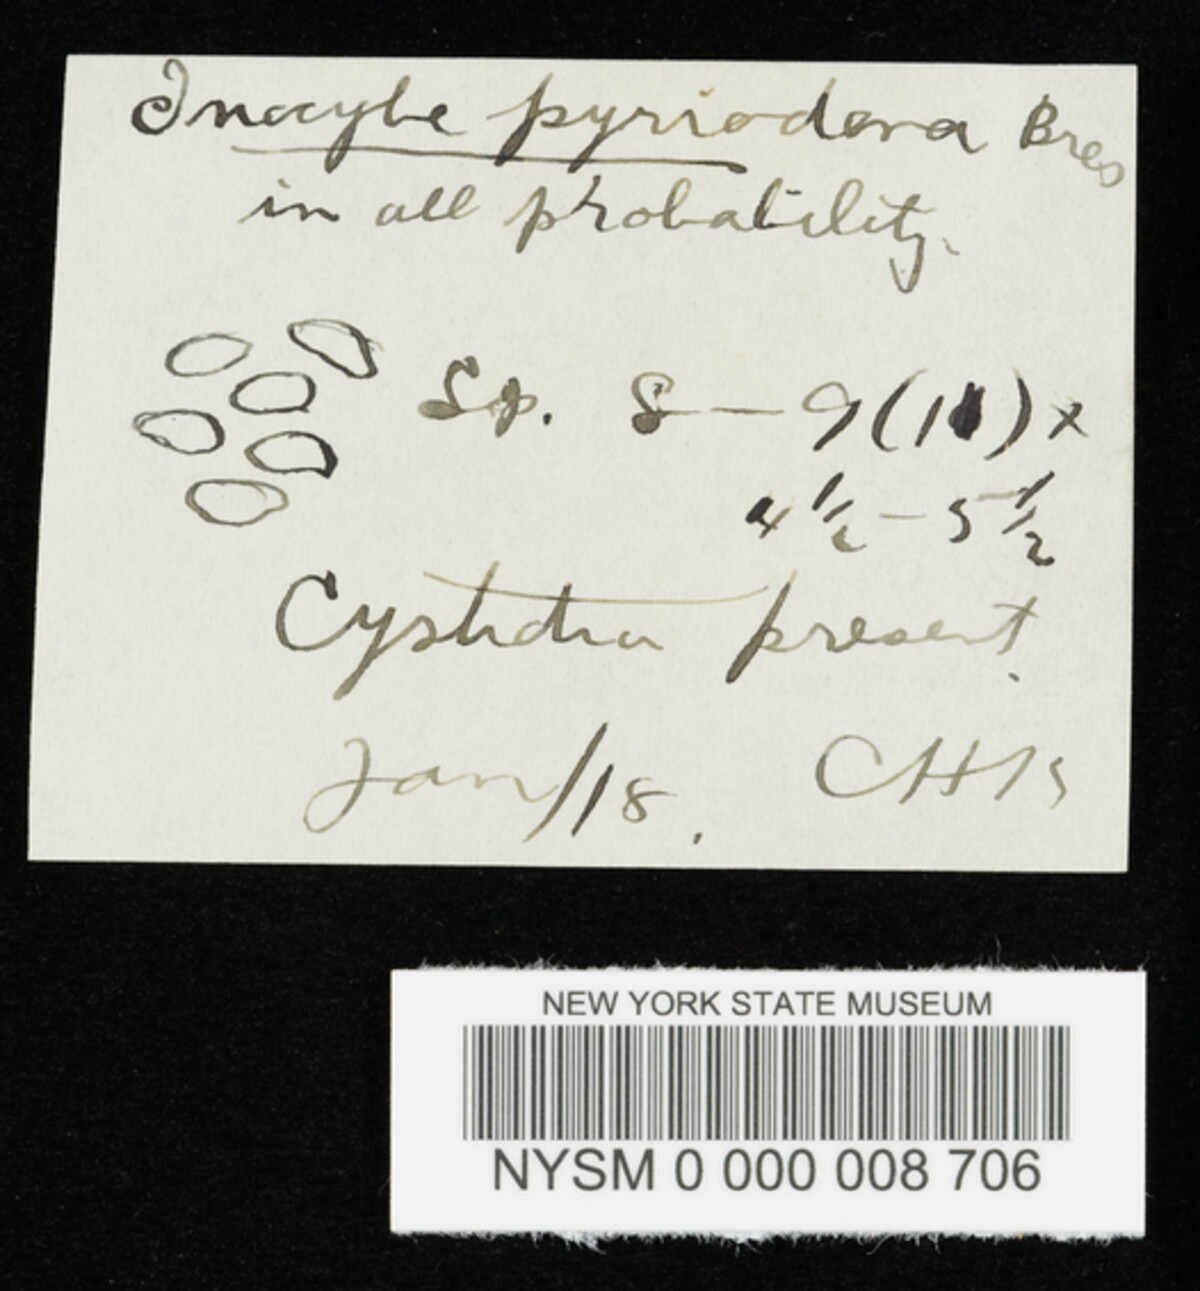 Inocybe pyriodora Bres
in all probability.
Sp. 8 — 9 (11) x
4 1/2 — 5 1/2
Cystidia present.
Jan/18. CHK
NEW YORK STATE MUSEUM
NYSM 0 000 008 706